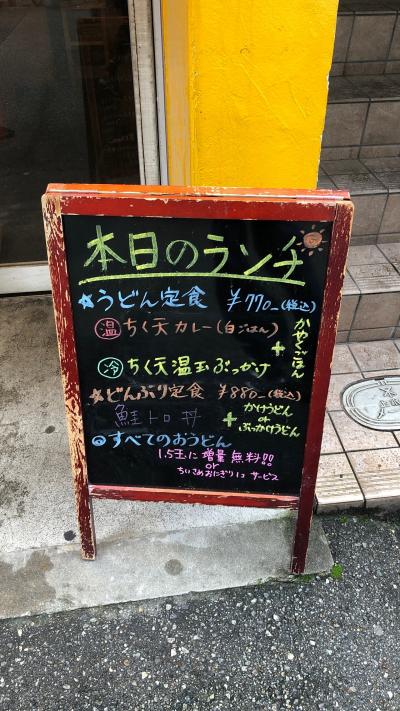 本日のランチ
★うどん定食 ¥770-(税込)
温 ちく天カレー(白ごはん)
冷 ちく天温玉ぶっかけ
+かやくごはん
★どんぶり定食 ¥880-(税込)
鮭トロ丼
+かけうどん
or
ぶっかけうどん
◎すべてのおうどん
1.5玉に増量無料!!
or
ちいさめおにぎり1コ サービス